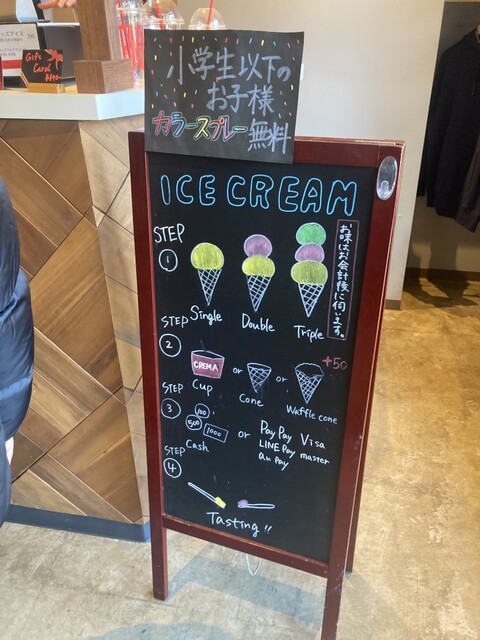 Gift
Card
小学生以下の
お子様
カラースプレー無料
ICE CREAM
STEP
1
Single
Double
Triple
お味はお会計後に伺います。
STEP
2
CREMA
Cup
or
Cone
or
Waffle cone
+50
STEP
3
100
500
1000
Cash
or
PayPay
LINE Pay
au Pay
Visa
master
STEP
4
Tasting!!